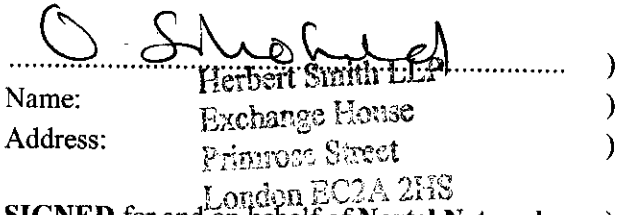 O.
Herbert Smith LLP )
Name: Exchange House )
Address: Primrose Street )
London EC2A 2HS
SIGNED for and on behalf of Nortel Networks )